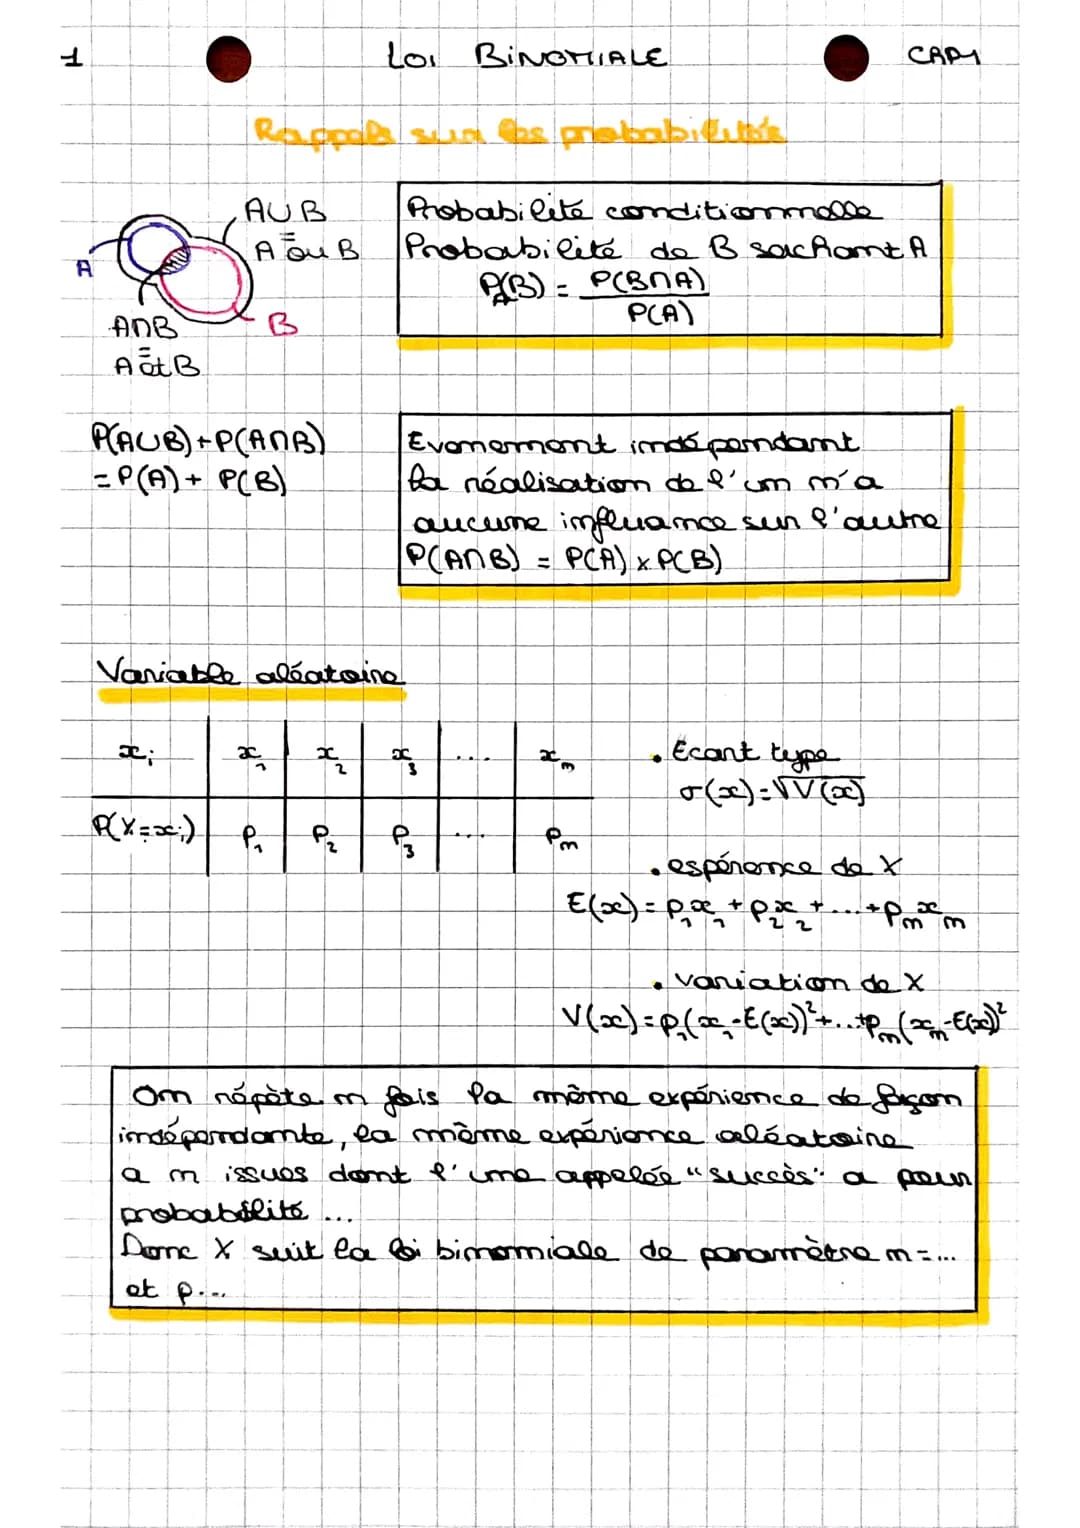 1 LOI BINOMIALE CAP1
Rappels sur les probabilités
A∪B
=
A ou B
A
B
A∩B
=
A et B
Probabilité conditionnelle
Probabilité de B sachant A
P_A(B) = P(B∩A) / P(A)
P(A∪B)+P(A∩B)
= P(A) + P(B)
Evenement indépendant
la réalisation de l'un n'a
aucune influence sur l'autre
P(A∩B) = P(A) x P(B)
Variable aléatoire
x_i x_1 x_2 x_3 ... x_n
P(X=x_i) P_1 P_2 P_3 ... P_n
• Ecart type
σ(x)=√V(x)
• espérence de X
E(x) = p_1x_1 + p_2x_2 + ... + p_nx_n
• variation de X
V(x) = p_1(x_1-E(x))²+...+p_n(x_n-E(x))²
On répète n fois la même expérience de façon
indépendante, la même expérience aléatoire
a n issues dont l'une appelée "succès" a pour
probabilité ...
Donc X suit la loi binomiale de paramètre n=...
et p...